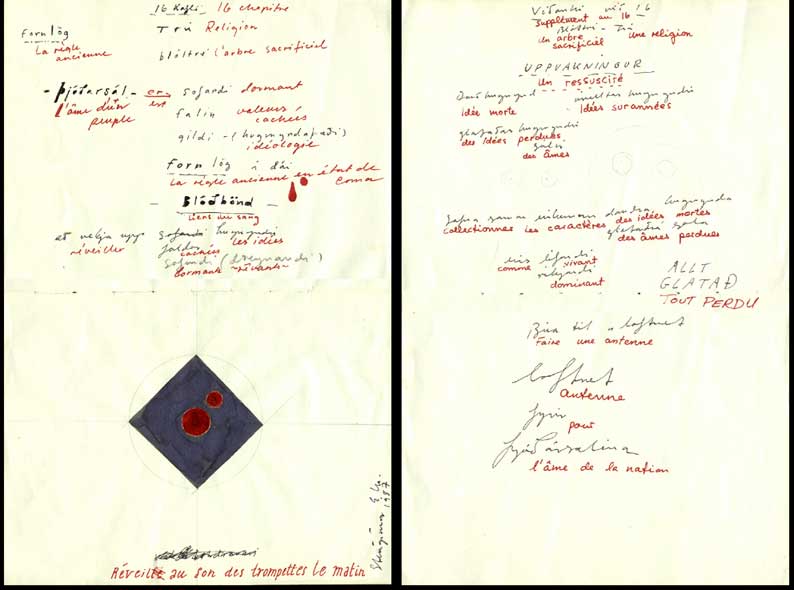 16 Kafli 16 chapitre
Forn lög
La règle
ancienne
Trú Religion
blóttré l'arbre sacrificiel
- þjóðarsál - er
L'âme d'un est
peuple
sofandi dormant
falin valeurs
cachées
gildi - (hugmyndafræði)
idéologie
Forn lög í dái
La règle ancienne en état de
coma
- Blóðbönd -
Liens du sang
at vekja upp
réveiller
sofandi hugmyndir
faldar les idées
cachées
sofandi (dreymandi)
dormante rêvante
Steingrímur E. K.
1987
Réveillé au son des trompettes le matin
Viðauki við 16
Supplément au 16
Blóttré - Trú
un arbre
sacrificiel
une religion
UPPVAKNINGUR
Un ressuscité
Idée morte
Idées surannées
glataðar hugmyndir
des Idées perdues
sálir
des âmes
Safna saman
collectionner les caractères des idées mortes
des âmes perdues
comme vivant
ríkjandi
dominant
ALLT
GLATAÐ
TOUT PERDU
Búa til loftnet
Faire une antenne
loftnet
antenne
fyrir
pour
þjóðarsálina
l'âme de la nation